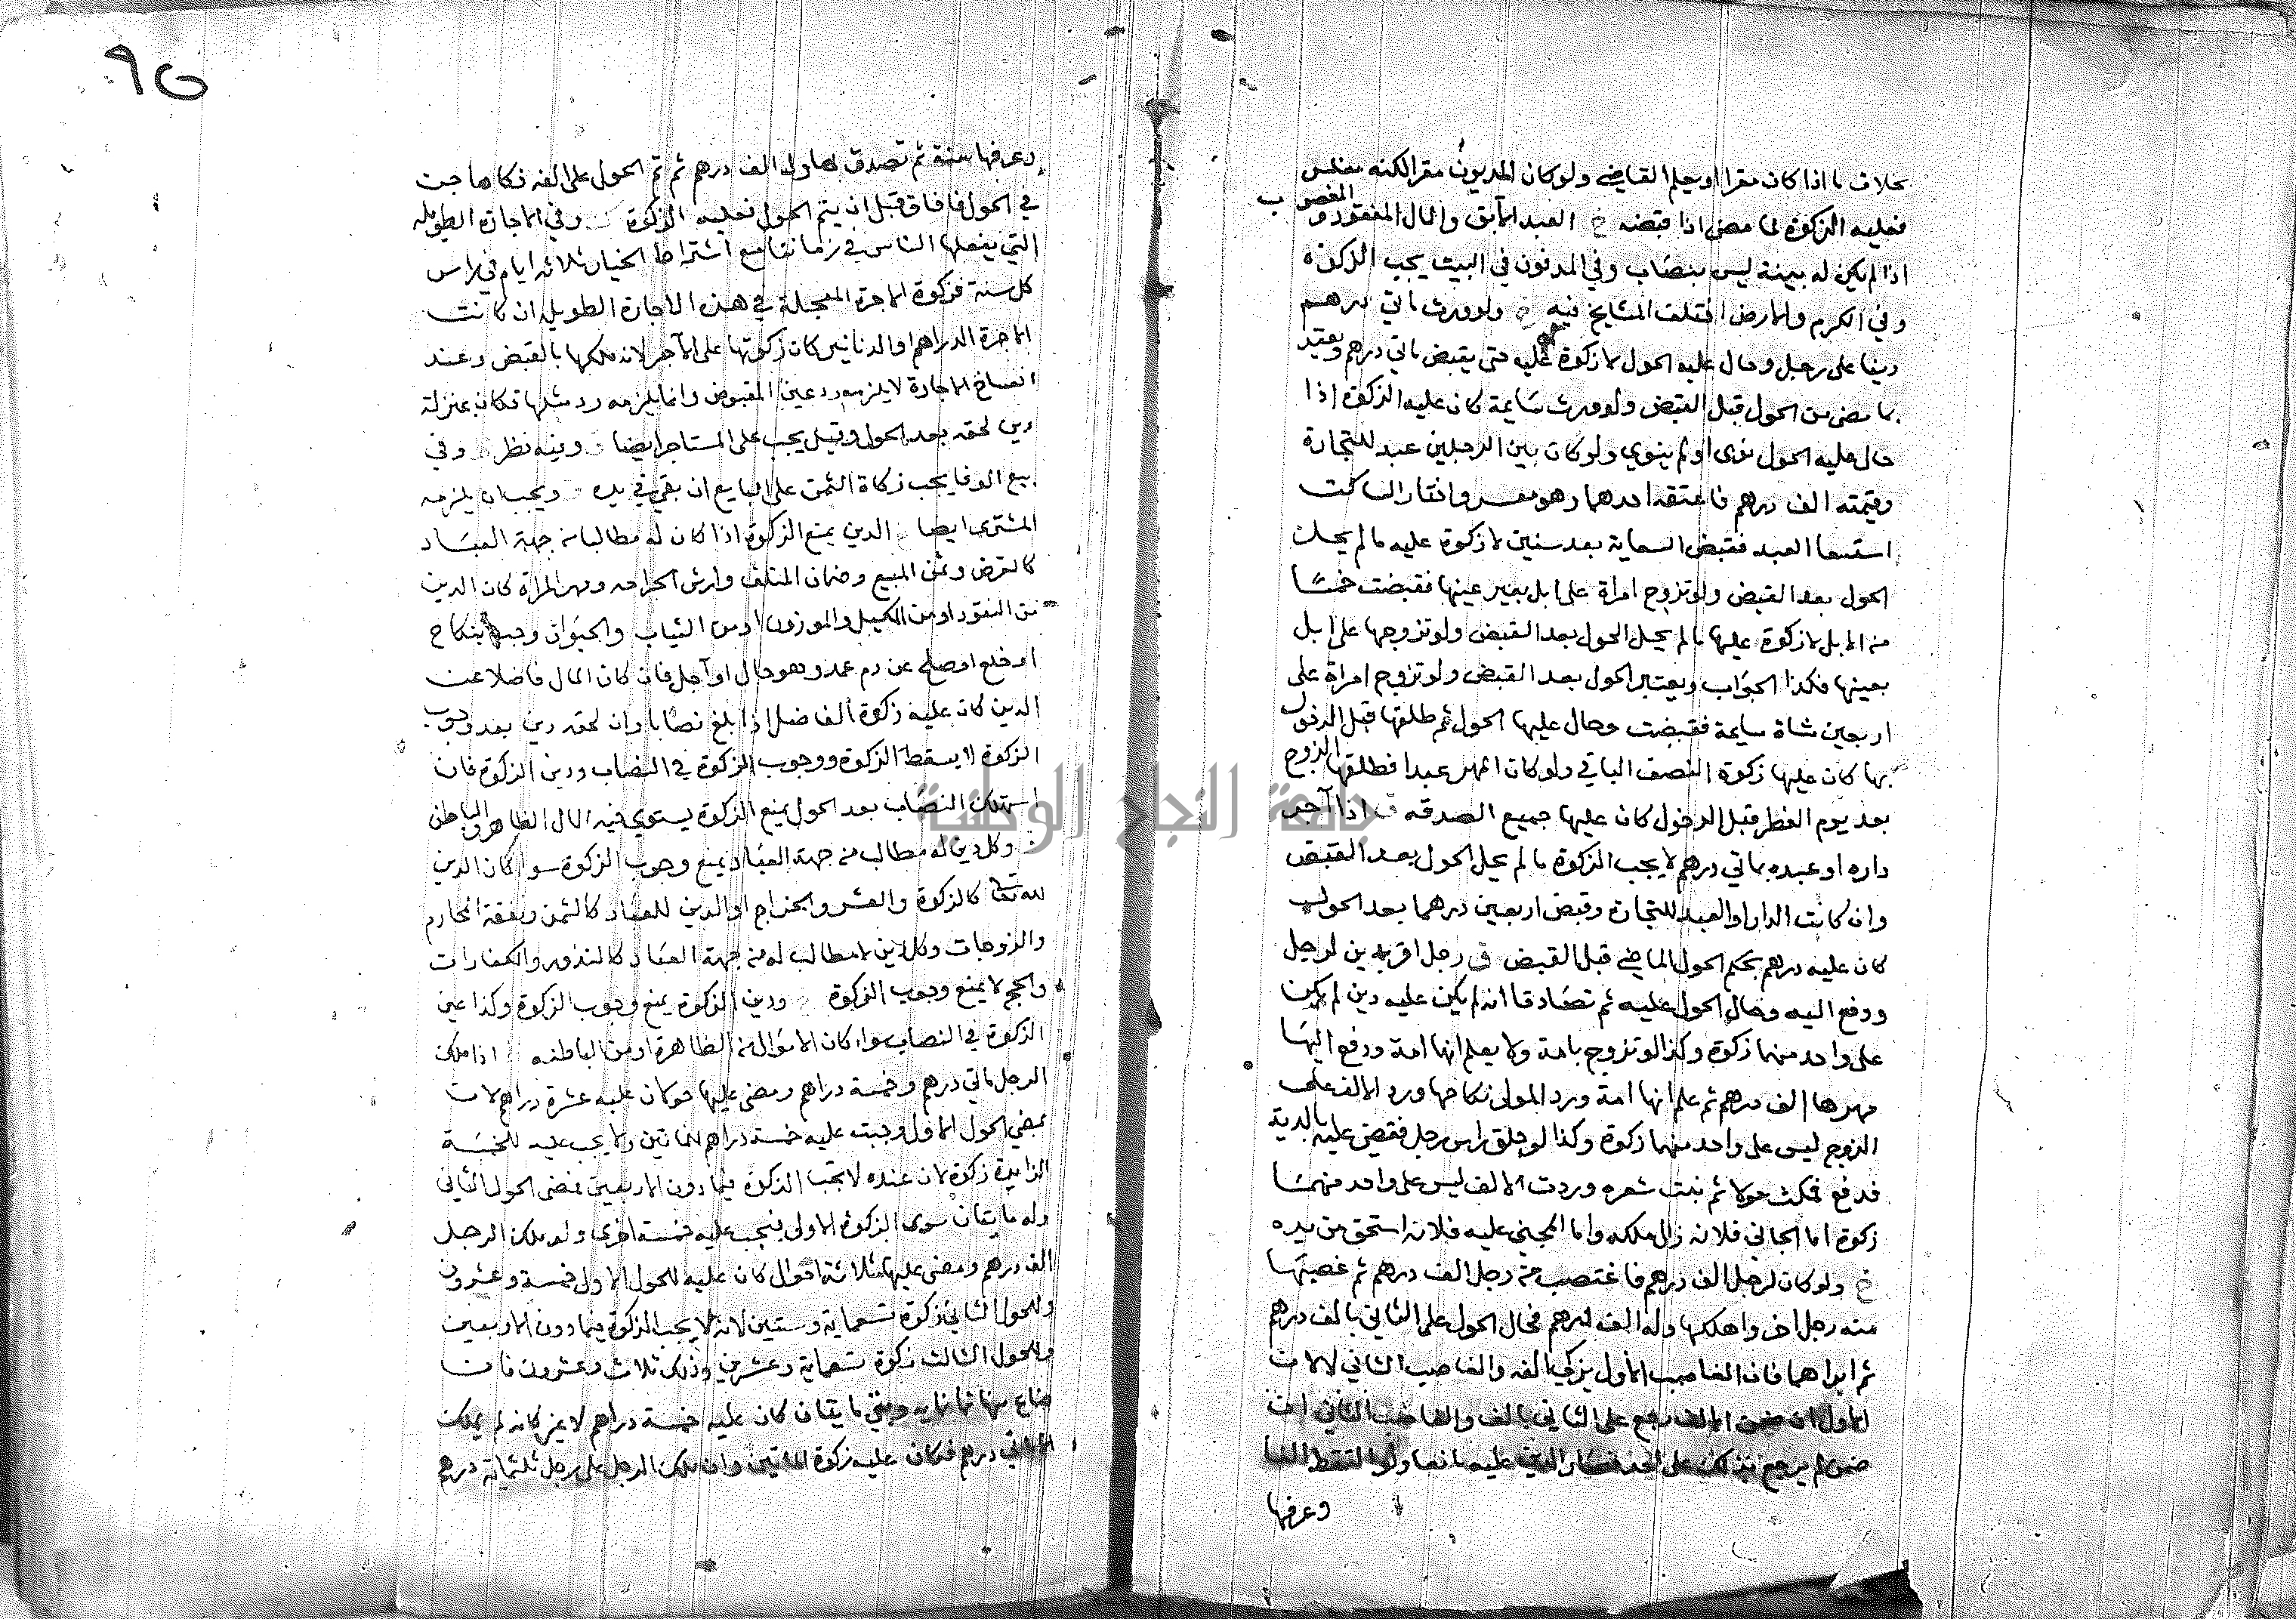 بخلاف ما اذا كان مقرا او يعلم القاضي ولو كان المديون مقرا لكنه مفلس
فعليه الزكوة لما مضى اذا قبضه خ العبد الآبق والمال المفقود والمغصوب
اذا لم يكن له بينة ليس بنصاب وفي المدفون في البيت يجب الزكوة
وفي الكرم والارض اختلف المشايخ فيه ولو ورث مائتي درهم
دينا على رجل وحال عليه الحول لا زكوة عليه حتى يقبض مائتي درهم ويعتبر
بما مضى من الحول قبل القبض ولو ورث سايمة كان عليه الزكوة اذا
حال عليه الحول نوى او لم ينوي ولو كان بين الرجلين عبد للتجارة
وقيمته الف درهم فاعتقه احدهما وهو معسر واختار الساكت
استسعا العبد فقبض السعاية بعد سنين لا زكوة عليه ما لم يحل
الحول بعد القبض ولو تزوج امراة على ابل بغير عينها فقبضت خمسا
من الابل لا زكوة عليها ما لم يحل الحول بعد القبض ولو تزوجها على ابل
بعينها فكذا الجواب ويعتبر الحول بعد القبض ولو تزوج امراة على
اربعين شاة سايمة فقبضت وحال عليها الحول ثم طلقها قبل الدخول
بها كان عليها زكوة النصف الباقي ولو كان المهر عبدا فطلقها الزوج
بعد يوم الفطر قبل الدخول كان عليها جميع الصدقه اذا آجر
داره او عبده بمائتي درهم لا يجب الزكوة ما لم يحل الحول بعد القبض
وان كانت الدار او العبد للتجارة وقبض اربعين درهما بعد الحول
كان عليه درهم بحكم الحول الماضي قبل القبض ق رجل اقر بدين لرجل
ودفع اليه وحال الحول عليه ثم تصادقا انه لم يكن عليه دين لم يكن
على واحد منهما زكوة وكذا لو تزوج بامة ولا يعلم انها امة ودفع اليها
مهرها الف درهم ثم علم انها امة ورد المولى نكاحها ورد الالف على
الزوج ليس على واحد منهما زكوة وكذا لو حلق راس رجل فقضى عليه بالدية
فدفع فمكث حولا ثم نبت شعره وردت الالف ليس على واحد منهما
زكوة اما الجاني فلانه زال ملكه واما المجني عليه فلانه استحق من يده
خ ولو كان لرجل الف درهم فاغتصب من رجل الف درهم ثم غصبها
منه رجل اخر واهلكها وله الف درهم فحال الحول على الثاني بالف درهم
ثم ابراهما فان الغاصب الاول يزكي الفه والغاصب الثاني لا لان
الاول ان ضمن الالف يرجع على الثاني بالف والغاصب الثاني ان
ضمن لم يرجع بذلك على احد فصار الدين عليه مانعا ولو التقط الفا
وعرفها
٩٥
وعرفها سنة ثم تصدق بها وله الف درهم ثم تم الحول على الفه زكاها جن
في الحول فافاق قبل ان يتم الحول فعليه الزكوة وفي الاجارة الطويلة
التي يفعلها الناس في زماننا مع اشتراط الخيار ثلاثه ايام في راس
كل سنة فزكوة الاجرة المعجلة في هذه الاجارة الطويله ان كانت
الاجرة الدراهم او الدنانير كان زكوتها على الآجر لانه ملكها بالقبض وعند
انفساخ الاجارة لا يلزمه رد عين المقبوض وانما يلزمه رد مثلها فكان بمنزلة
دين لحقه بعد الحول وقيل يجب على المستاجر ايضا وفيه نظر وفي
بيع الوفا يجب زكاة الثمن على البايع ان بقي في يده ويجب ان يلزمه
المشتري ايضا الدين يمنع الزكوة اذا كان له مطالبا من جهة العباد
كالقرض وثمن المبيع وضمان المتلف وارش الجراحه ومهر المراة كان الدين
من النقود او من المكيل والموزون او من الثياب والحيوان وجب بنكاح
او خلع او صلح عن دم عمد وهو حال او آجل فان كان المال فاضلا عن
الدين كان عليه زكوة الفاضل اذا بلغ نصابا وان لحقه دين بعد وجوب
الزكوة لا يسقط الزكوة ووجوب الزكوة في النصاب ودين الزكوة فان
استهلك النصاب بعد الحول يمنع الزكوة يستوي فيه المال الظاهر والباطن
وكل دين له مطالب من جهة العباد يمنع وجوب الزكوة سوا كان الدين
لله تعا كالزكوة والعشر والخراج او الدين للعباد كالثمن ونفقة المحارم
والزوجات وكل دين لا مطالب له من جهة العباد كالنذور والكفارات
والحج لا يمنع وجوب الزكوة ودين الزكوة يمنع وجوب الزكوة وكذا عين
الزكوة في النصاب سواء كان الاموال من الظاهرة او من الباطنه اذا ملك
الرجل مائتي درهم وخمسة دراهم ومضى عليها حولان عليه عشرة دراهم لان
بمضي الحول الاول وجبت عليه خمسة دراهم للمائتين ولا يجب عليه للخمسة
الزايدة زكوة لان عنده لا تجب الزكوة فيما دون الاربعين فمضى الحول الثاني
وله مايتان سوى الزكوة الاولى فيجب عليه خمسة اخرى ولو ملك الرجل
الف درهم ومضى عليها ثلاثة احوال كان عليه للحول الاول خمسة وعشرون
وللحول الثاني زكوة تسعماية وستين لانه لا يجب الزكوة فيما دون الاربعين
وللحول الثالث زكوة تسعماية وعشرين وذلك ثلاث وعشرون فان
ضاع منها ثمانمايه وبقي مايتان كان عليه خمسة دراهم لا غير كانه لم يملك
الا مائتي درهم فكان عليه زكوة المائتين وان ملك الرجل على رجل ثلثماية درهم
جامعة النجاح الوطنية